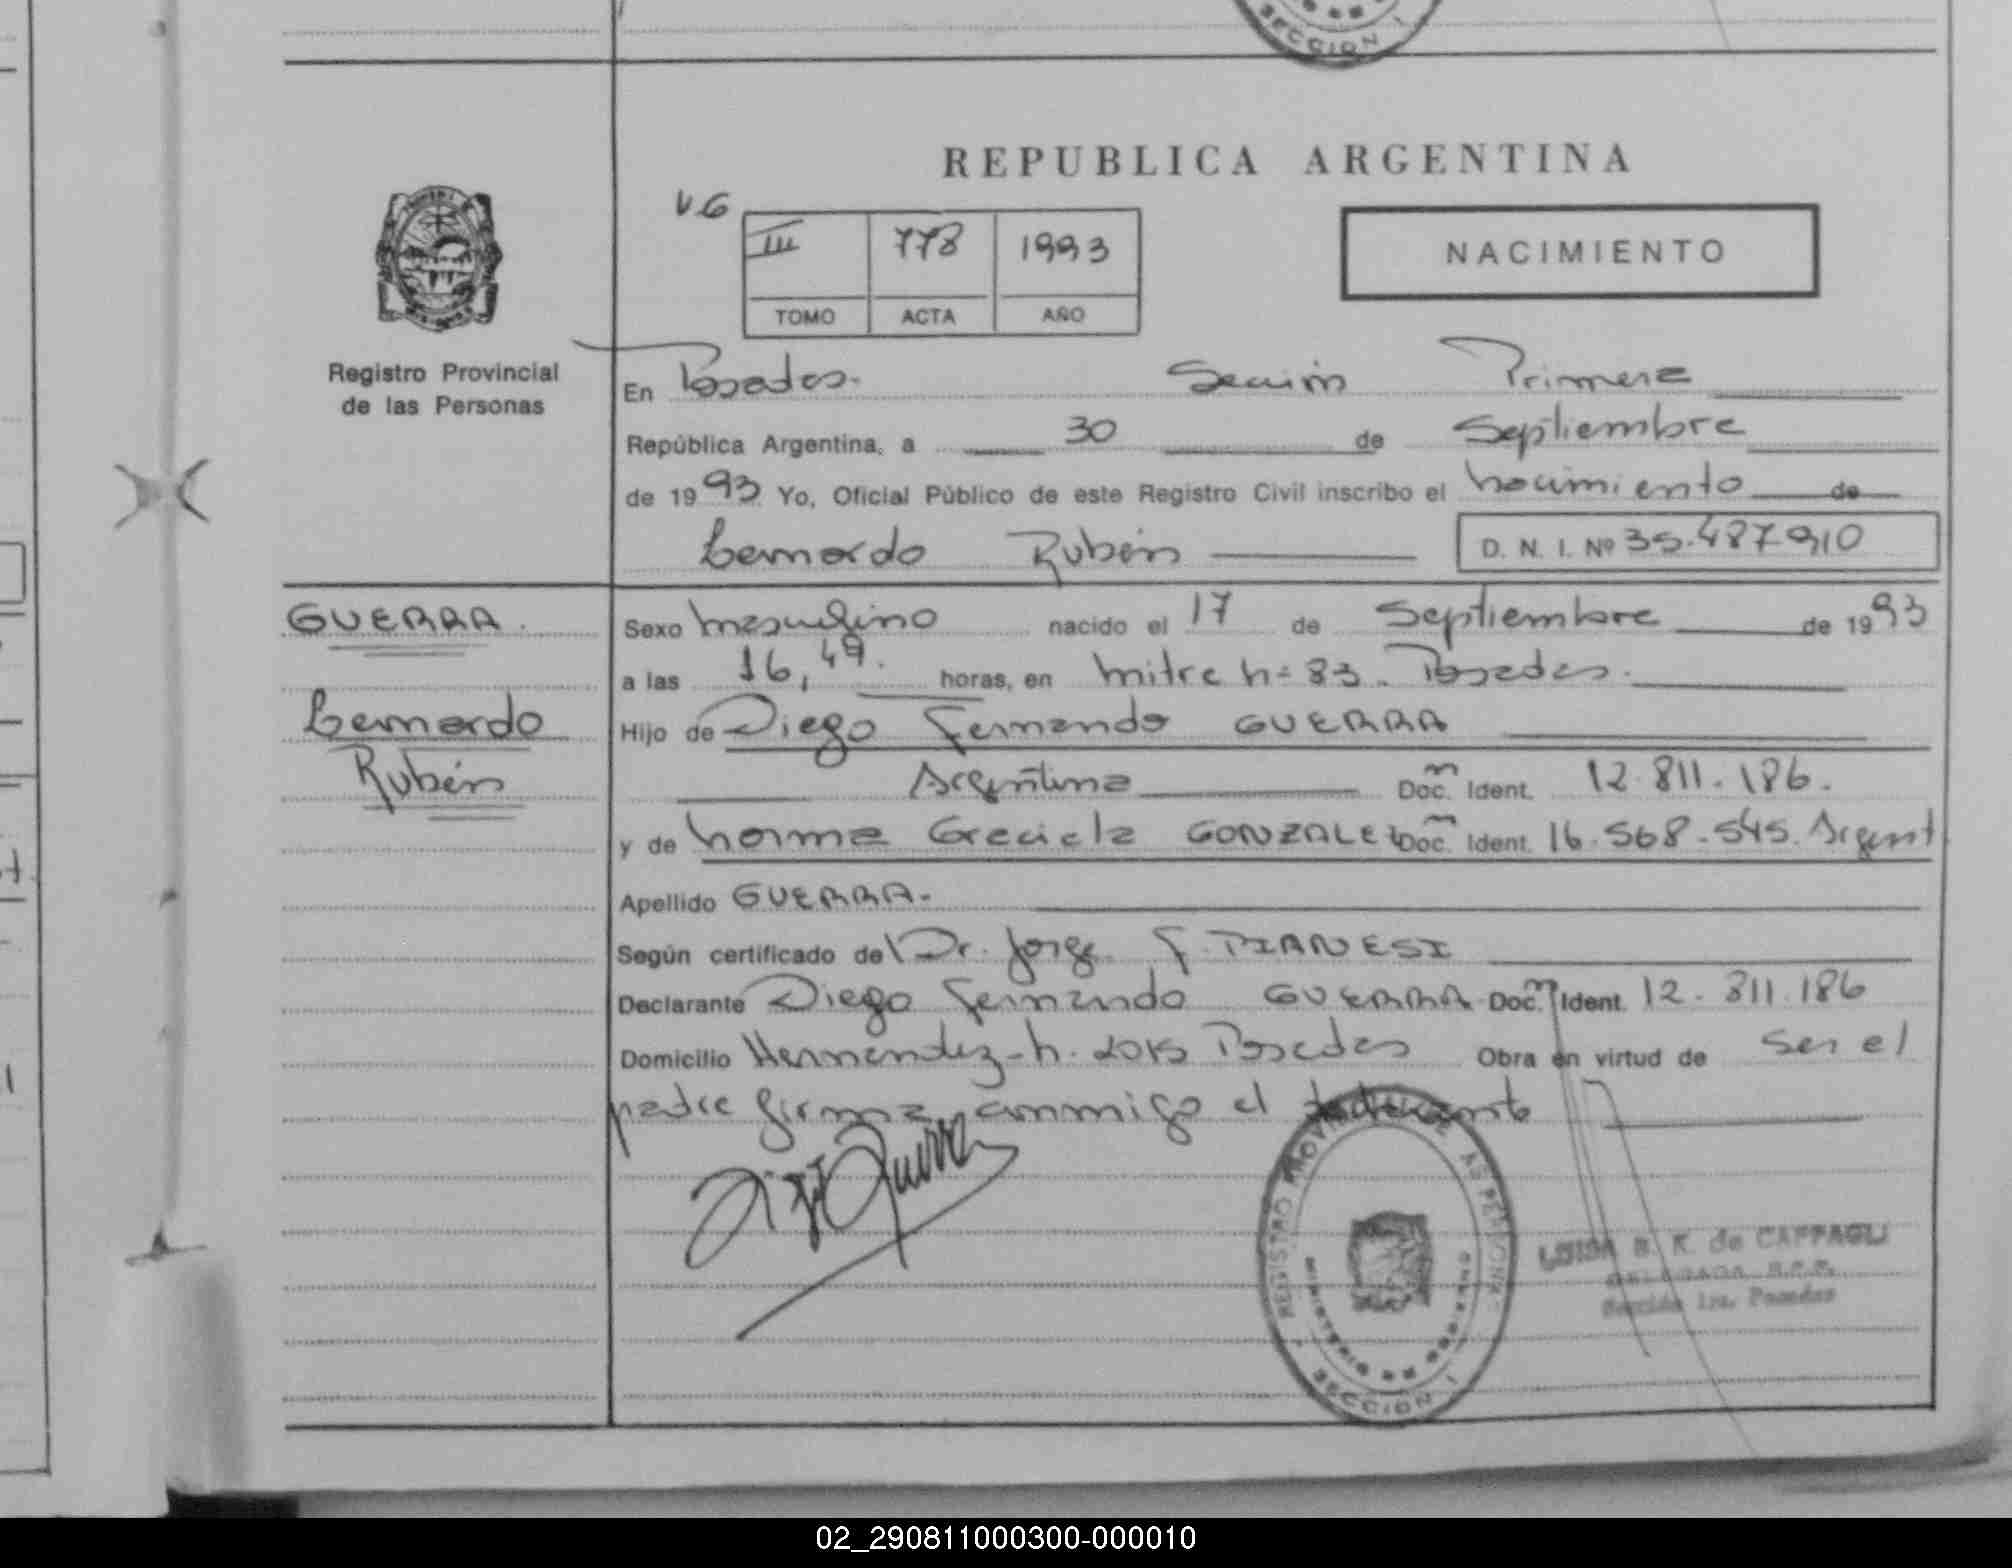 SECCION I
REPUBLICA ARGENTINA
V.G
III 778 1993
TOMO ACTA AÑO
NACIMIENTO
Registro Provincial
de las Personas
En Posadas. Sección Primera
República Argentina, a 30 de Septiembre
de 1993 Yo, Oficial Público de este Registro Civil inscribo el nacimiento de
Bernardo Rubén D. N. I. Nº 35.487.910
GUERRA.
Bernardo
Rubén
Sexo masculino nacido el 17 de Septiembre de 1993
a las 16,49. horas, en mitre n= 83. Posadas.
Hijo de Diego Fernando GUERRA
Argentina Doc. Ident. 12.811.186.
y de Norma Graciela GONZALEZ Doc. Ident. 16.568.545. Argent
Apellido GUERRA.
Según certificado de Dr. Jorge F. PIANESI
Declarante Diego Fernando GUERRA Doc. Ident. 12.811.186
Domicilio Hernandez n. 2015 Posadas Obra en virtud de ser el
padre firma conmigo el declarante
REGISTRO PROVINCIAL DE LAS PERSONAS
MINISTERIO DE GOBIERNO
SECCION I
LUISA B. K. de CAFFAGLI
DELEGADA R.P.P.
Sección 1ra. Posadas
02_290811000300-000010